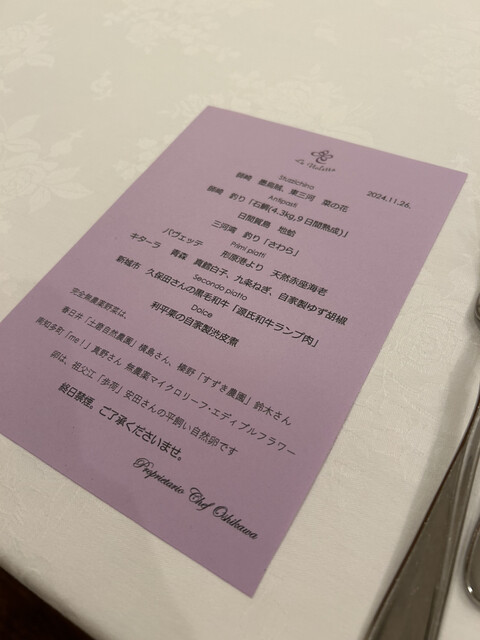 Stuzzichino
2024.11.26.
師崎 墨烏賊、東三河 菜の花
Antipasti
師崎 釣り「石鯛(4.3kg,9日間熟成)」
日間賀島 地蛤
三河湾 釣り「さわら」
Primi piatti
パヴェッテ 形原港より 天然赤座海老
キターラ 青森 真鱈白子、九条ねぎ、自家製ゆず胡椒
Secondo piatto
新城市 久保田さんの黒毛和牛「源氏和牛ランプ肉」
Dolce
利平栗の自家製渋皮煮
完全無農薬野菜は、
春日井「土磨自然農園」横島さん、榛野「すずき農園」鈴木さん
南知多町「me!」真野さん 無農薬マイクロリーフ・エディブルフラワー
卵は、祖父江「歩荷」安田さんの平飼い自然卵です
終日禁煙。ご了承くださいませ。
Proprietario Chef Oshikawa